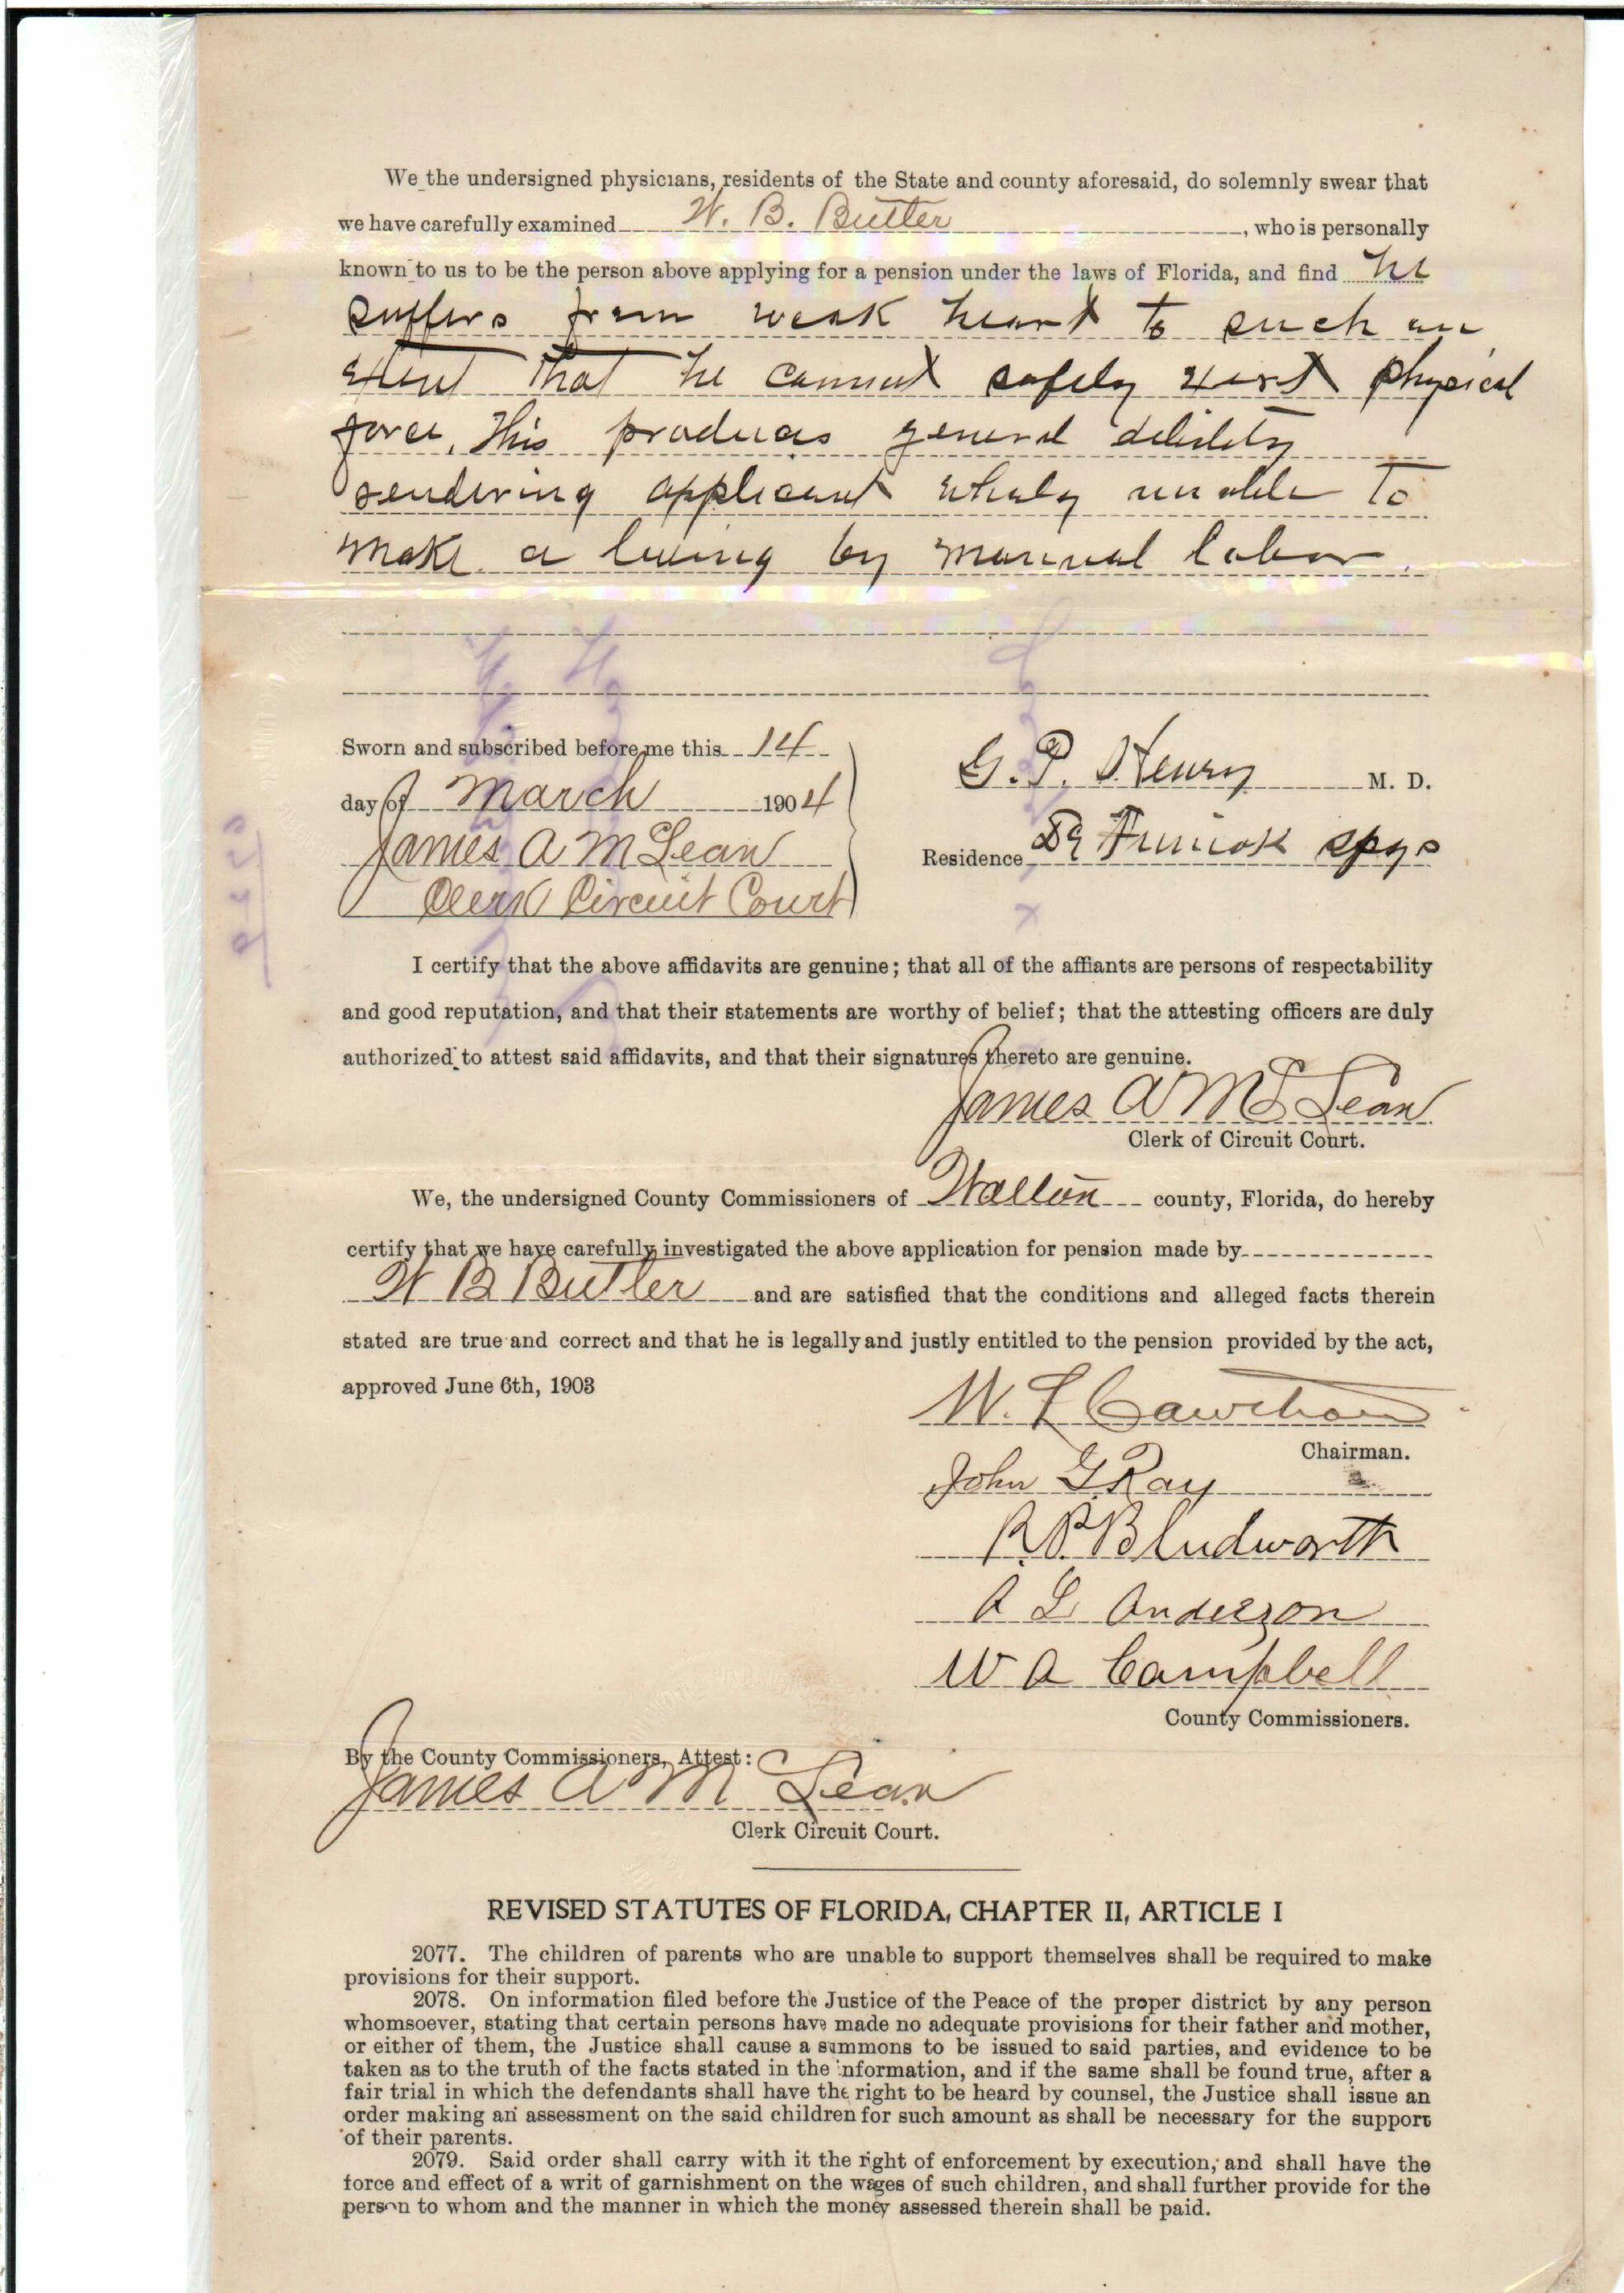 We the undersigned physicians, residents of the State and county aforesaid, do solemnly swear that
we have carefully examined W. B. Butler, who is personally
known to us to be the person above applying for a pension under the laws of Florida, and find he
suffers from weak heart to such an
extent that he cannot safely exert physical
force. This produces general debility
rendering applicant wholy unable to
make a living by manual labor.
Sworn and subscribed before me this 14
day of March 1904
James A McLean
Clerk Circuit Court
G. P. Henry M. D.
Residence De Funiak Spgs
I certify that the above affidavits are genuine; that all of the affiants are persons of respectability
and good reputation, and that their statements are worthy of belief; that the attesting officers are duly
authorized to attest said affidavits, and that their signatures thereto are genuine.
James A McLean
Clerk of Circuit Court.
We, the undersigned County Commissioners of Walton county, Florida, do hereby
certify that we have carefully investigated the above application for pension made by
W B Butler and are satisfied that the conditions and alleged facts therein
stated are true and correct and that he is legally and justly entitled to the pension provided by the act,
approved June 6th, 1903
W. L. Cawthon
Chairman.
John G Ray
R. P. Bludworth
A L Anderson
W A Campbell
County Commissioners.
By the County Commissioners, Attest:
James A McLean
Clerk Circuit Court.
REVISED STATUTES OF FLORIDA, CHAPTER II, ARTICLE I
2077. The children of parents who are unable to support themselves shall be required to make
provisions for their support.
2078. On information filed before the Justice of the Peace of the proper district by any person
whomsoever, stating that certain persons have made no adequate provisions for their father and mother,
or either of them, the Justice shall cause a summons to be issued to said parties, and evidence to be
taken as to the truth of the facts stated in the information, and if the same shall be found true, after a
fair trial in which the defendants shall have the right to be heard by counsel, the Justice shall issue an
order making an assessment on the said children for such amount as shall be necessary for the support
of their parents.
2079. Said order shall carry with it the right of enforcement by execution, and shall have the
force and effect of a writ of garnishment on the wages of such children, and shall further provide for the
person to whom and the manner in which the money assessed therein shall be paid.